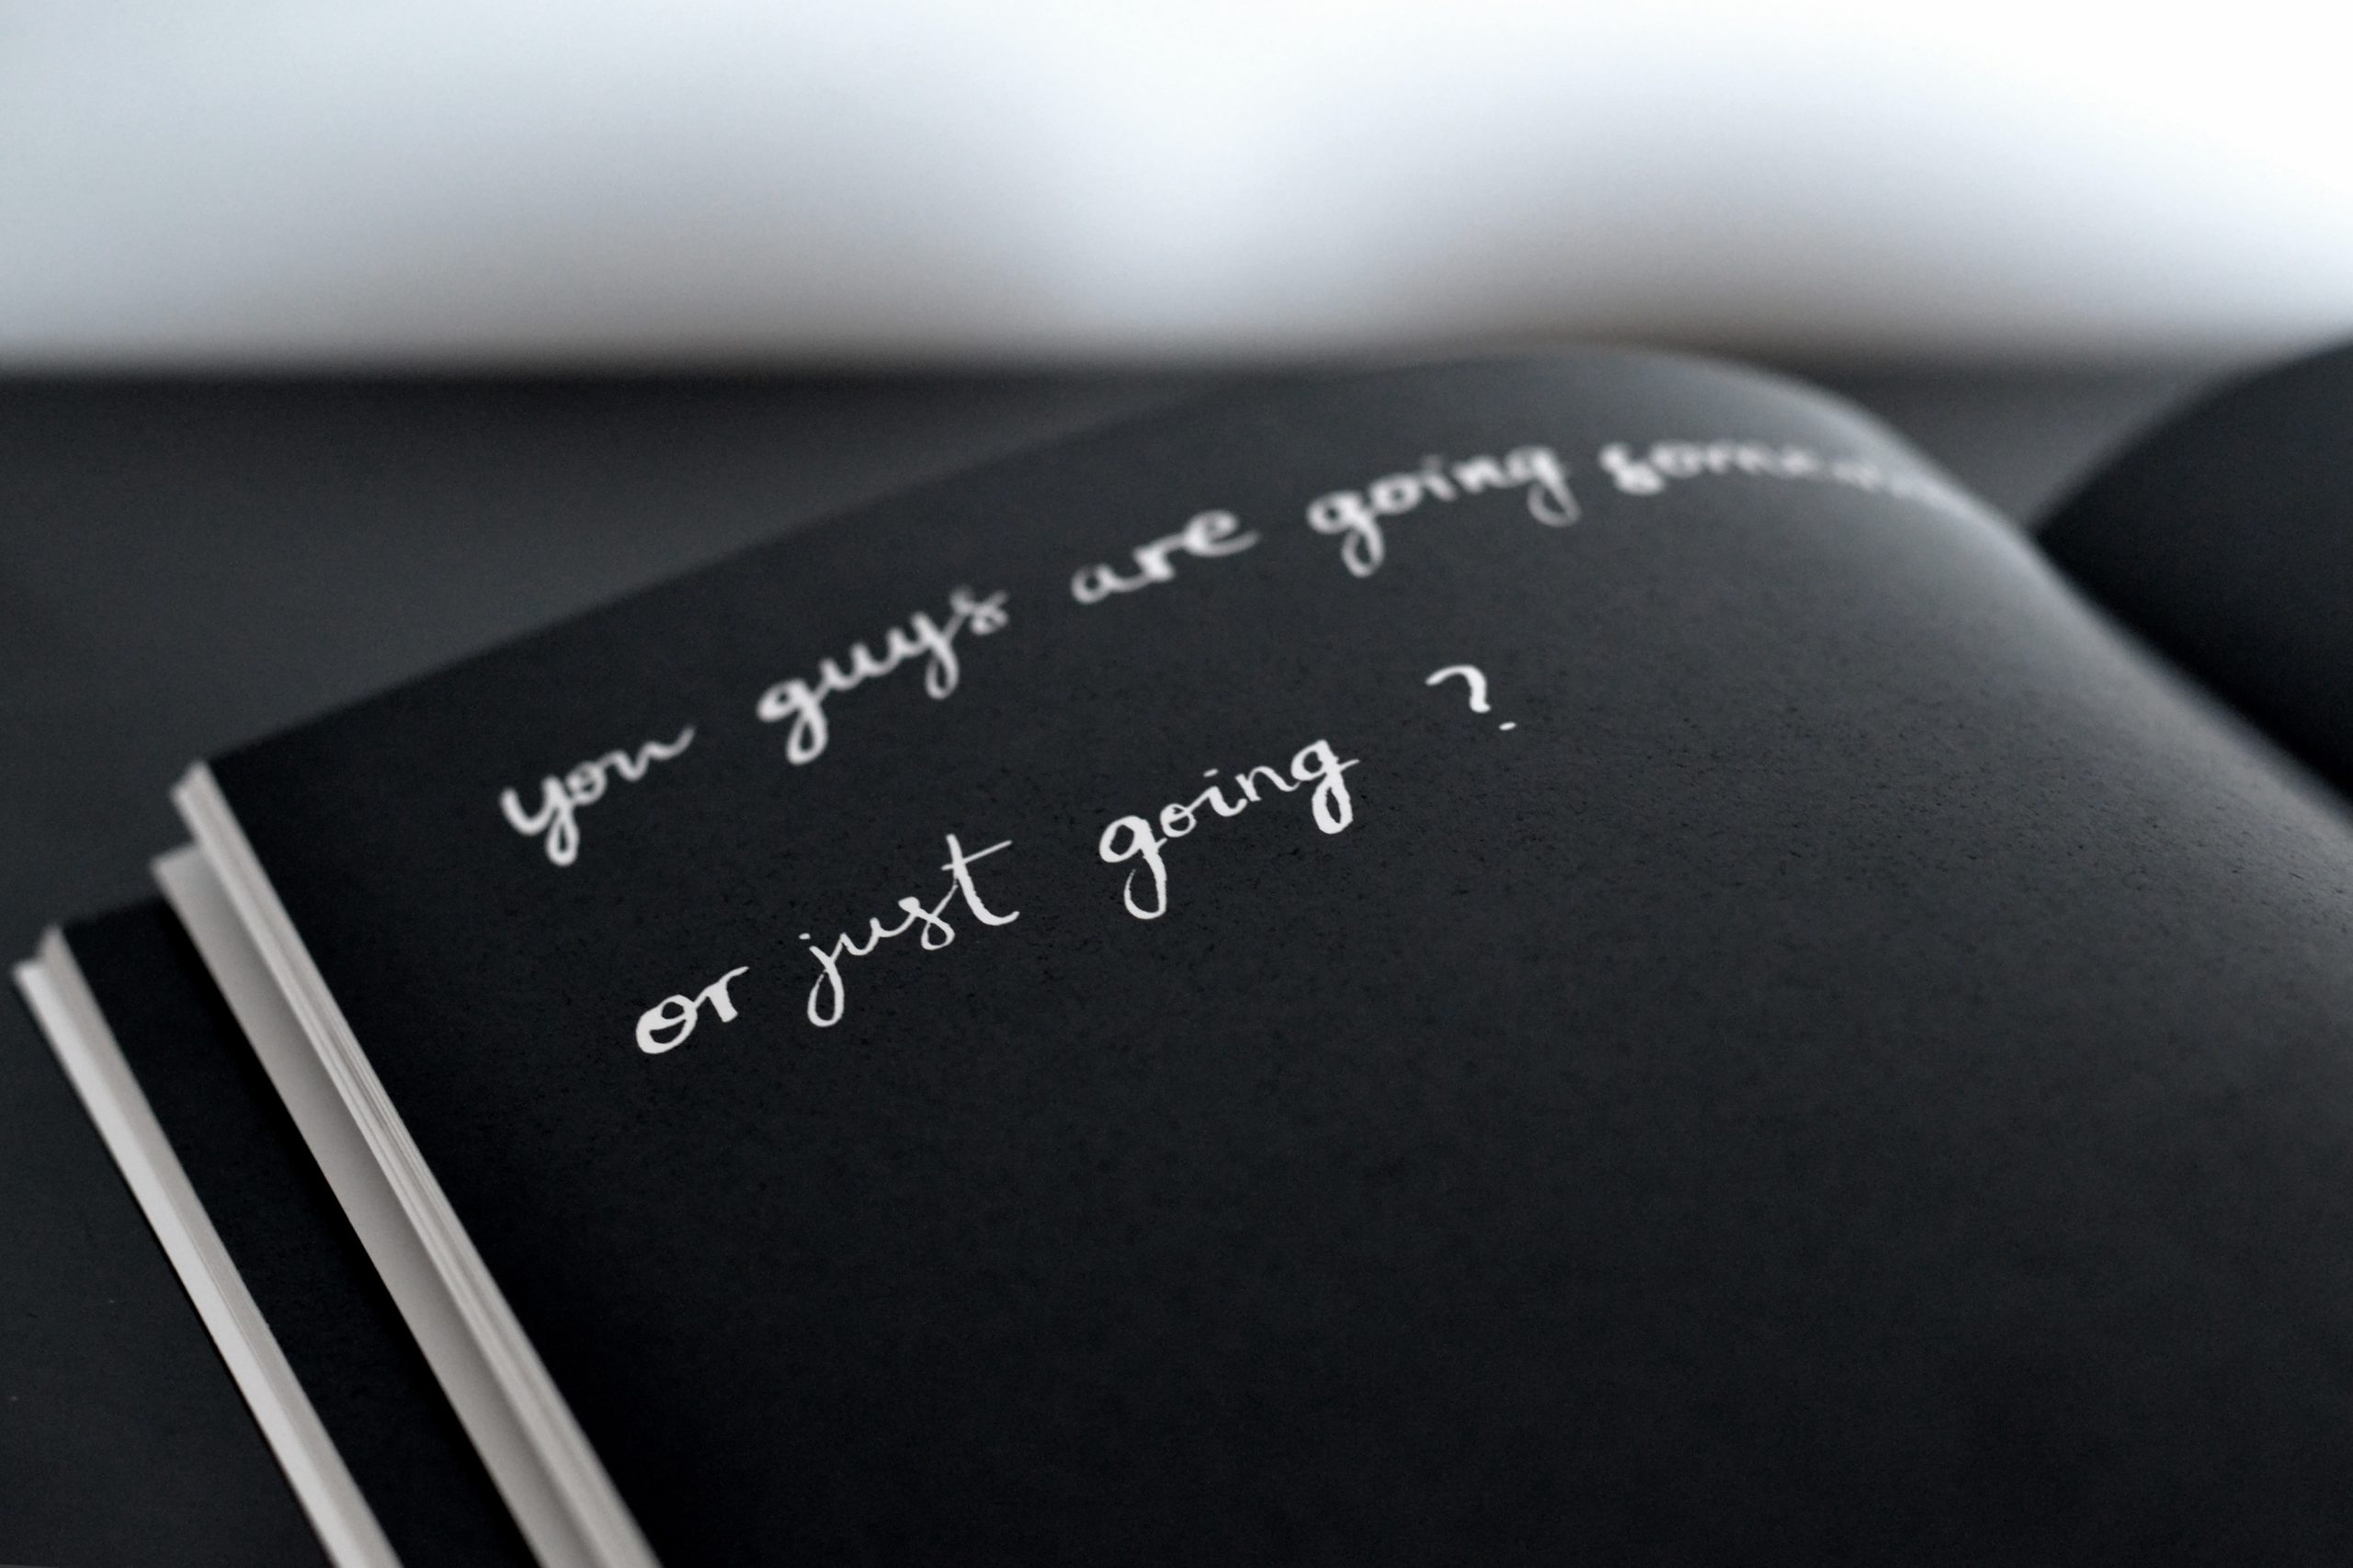 you guys are going
or just going ?